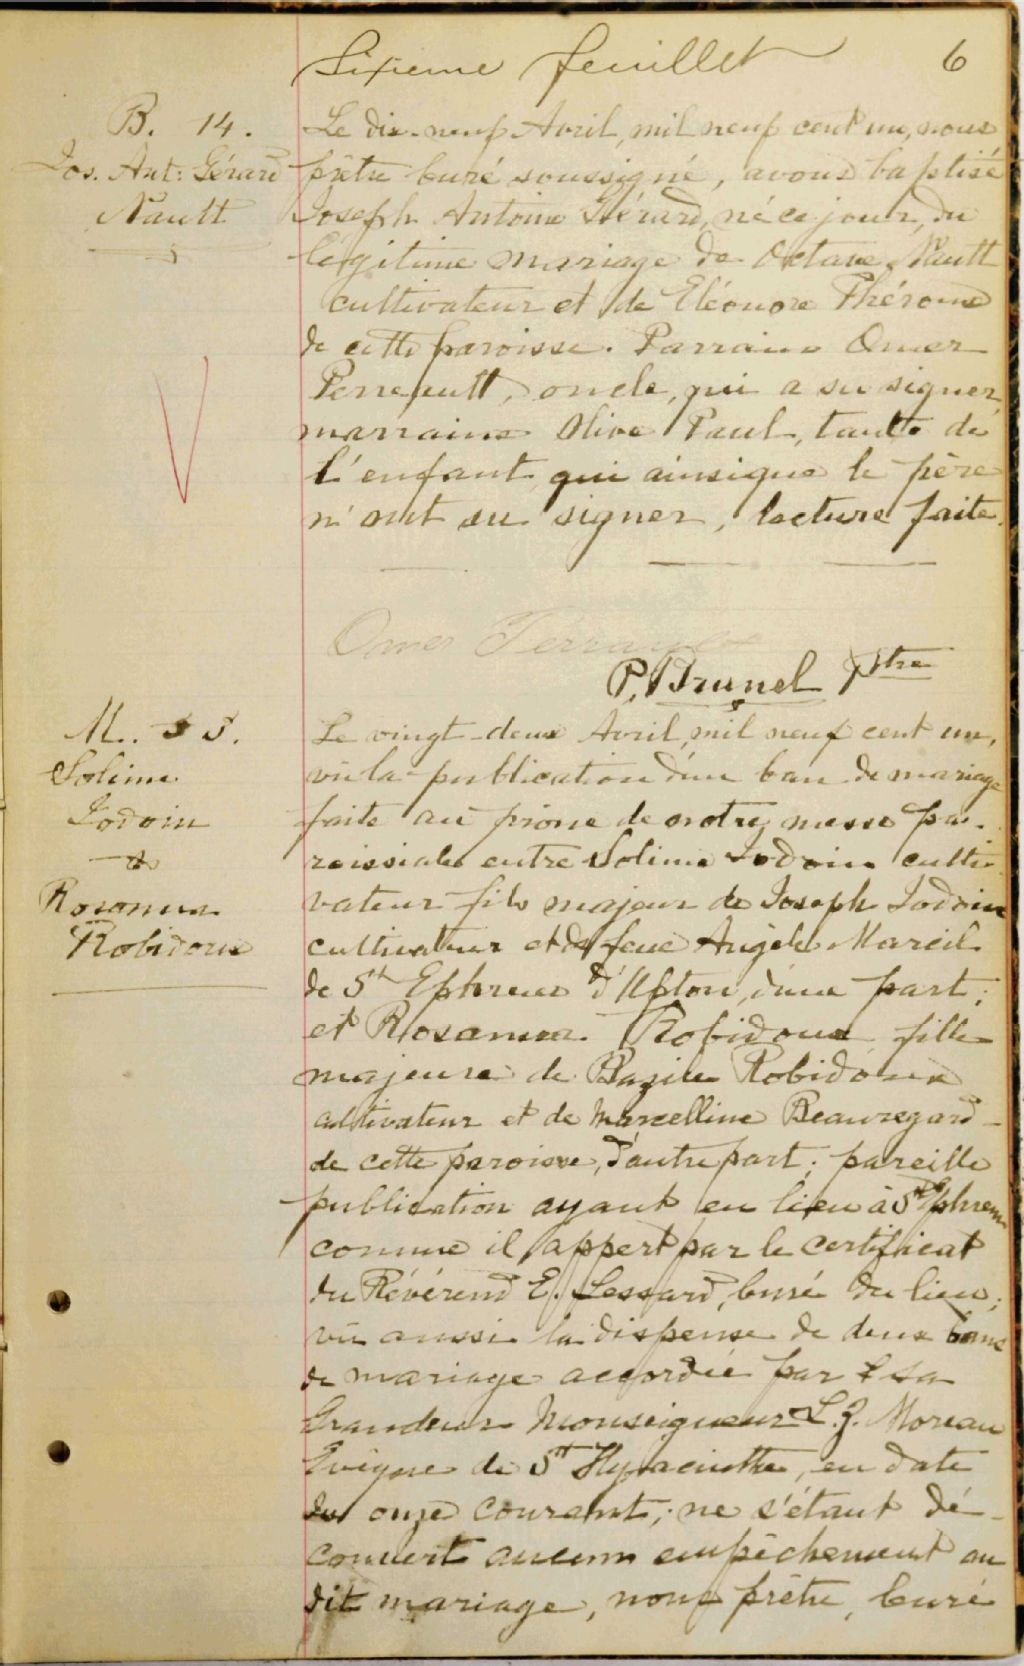 Sixieme feuillet 6
B. 14.
Jos. Ant: Gérard
Nault
Le dix-neuf Avril, mil neuf cent un, nous
prêtre curé soussigné, avons baptisé
Joseph Antoine Gérard, né ce jour, du
légitime mariage de Octave Nault
cultivateur et de Eléonore Théroux
de cette paroisse. Parrain Omer
Perreault, oncle, qui a su signer,
marraine Olive Paul, tante de
l'enfant qui ainsique le père
n'ont su signer, lecture faite.
Omer Perreault
P. Brunel Ptre
M.. 5.
Solime
Jodoin
&
Rosanna
Robidoux
Le vingt-deux Avril, mil neuf cent un,
vu la publication d'un ban de mariage
faite au prône de notre messe pa-
roissiale entre Solime Jodoin culti-
vateur fils majeur de Joseph Jodoin
cultivateur et de feue Angèle Mareil
de St Ephrem d'Upton, d'une part;
et Rosanna Robidoux fille
majeure de Bazile Robidoux
cultivateur et de Marcelline Beauregard
de cette paroisse, d'autre part; pareille
publication ayant eu lieu à St Ephrem
comme il appert par le certificat
du Révérend E. Lessard, curé du lieu;
vu aussi la dispense de deux bans
de mariage accordée par sa
Grandeur Monseigneur L. Z. Moreau
Evêque de St Hyacinthe, en date
du onze courant; ne s'étant dé-
couvert aucun empêchement au
dit mariage, nous prêtre, curé